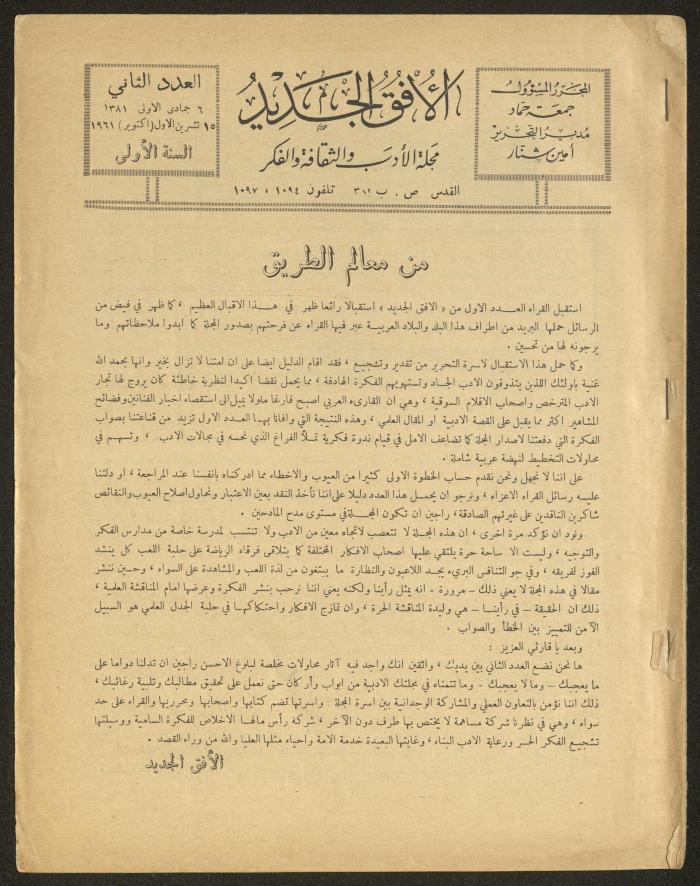 العدد الثاني
٦ جمادى الاولى ١٣٨١
١٥ تشرين الاول (اكتوبر) ١٩٦١
السنة الأولى
الأفق الجديد
مجلة الأدب والثقافة والفكر
القدس ص . ب ٣١٢ تلفون ١٠٩٤ ، ١٠٩٧
المحرر المسؤول
جمعة حماد
مدير التحرير
أمين شنار
من معالم الطريق
استقبل القراء العـدد الاول من « الافق الجديد » استقبالا رائعا ظهر في هـذا الاقبال العظيم ، كما ظهر في فيض من
الرسائل حملها البريد من اطراف هذا البلد والبلاد العربيـة عبر فيها القراء عن فرحتهم بصدور المجلة كما ابدوا ملاحظاتهم وما
يرجونه لها من تحسين .
وكما حمل هذا الاستقبال لاسرة التحرير من تقدير وتشجيع ، فقد اقام الدليل ايضا على ان امتنا لا تزال بخير وانها بحمد الله
غنية باولئك اللذين يتذوقون الادب الجـاد وتستهويهم الفكرة الهادفة ، مما يحمل نقضا اكيدا لنظرية خاطئة كان يروج لها تجار
الادب المترخص واصحاب الاقلام السوقية ، وهي ان القارىء العربي اصبح فارغا ملولا يميل الى استقصاء اخبار الفنانين وفضائح
المشاهير اكثر مما يقبل على القصة الادبية او المقال العلمي ، وهذه النتيجة التي وافانا بهـا العدد الاول تزيد من قناعتنا بصواب
الفكرة التي دفعتنا لاصدار المجلة كما تضاعف الامل في قيام ندوة فكرية تمـلأ الفراغ الذي نحسه في مجالات الادب ، وتسهـم في
محاولات التخطيط لنهضة عربية شاملة .
على اننا لا نجهل ونحن نقدم حساب الخطوة الاولى كثيرا من العيوب والاخطاء مما ادركناه بانفسنا عند المراجعة ، او دلتنا
عليه رسائل القراء الاعزاء ، ونرجو ان يحمـل هذا العدد دليلا على اننا نأخذ النقد بعين الاعتبار ونحاول اصلاح العيوب والنقائص
شاكرين الناقدين على غيرتهم الصادقة، راجين ان تكون المجـلة في مستوى مدح المادحين .
ونود ان نؤكد مرة اخرى ، ان هذه المجـلة لا تتعصب لاتجاه معين من الادب ولا تنتسب لمدرسة خاصة من مدارس الفكر
والتوجيه ، وليست الا ساحة حرة يلتقي عليها اصحاب الافكار المختلفة كما يتلاقى فرقاء الرياضة على حلبة اللعب كل ينشد
الفوز لفريقه ، وفي جو التنافس البريء يجـد اللاعبون والنظارة ما يبتغون من لذة اللعب والمشاهدة على السواء ، وحسين ننشر
مقالا في هذه المجلة لا يعني ذلك – مرورة – انه يمثل رأينا ولكنه يعني اننا نرحب بنشر الفكرة وعرضها امام المناقشة العلمية ،
ذلك ان الحقيقة – في رأينـا – هي وليدة المناقشة الحرة ، وان تمازج الافكار واحتكاكهـا في حلبة الجدل العلمي هو السبيل
الآمن للتمييز بين الخطأ والصواب .
وبعد يا قارئي العزيز :
ها نحن نضع العدد الثاني بين يديك ، واثقين انك واجد فيه آثار محاولات مخلصة لبلوغ الاحسن راجين ان تدلنا دوما على
ما يعجبك – وما لا يعجبك – وما تتمناه في مجلتك الادبية من ابواب واركان حتى نعمل على تحقيق مطالبك وتلبية رغائبك ،
ذلك اننا نؤمن بالتعاون العملي والمشاركة الوجدانية بين اسرة المجلة واسرتها تضم كتابها واصحابها ومحرريها والقراء على حد
سواء ، وهي في نظرنا شركة مساهمة لا يختص بها طرف دون الآخر ، شركة رأس مالهـا الاخلاص للفكرة السامية ووسيلتها
تشجيع الفكر الحـر ورعاية الادب البناء ، وغايتها البعيدة خدمة الامة واحياء مثلها العليا والله من وراء القصد .
الأفق الجديد